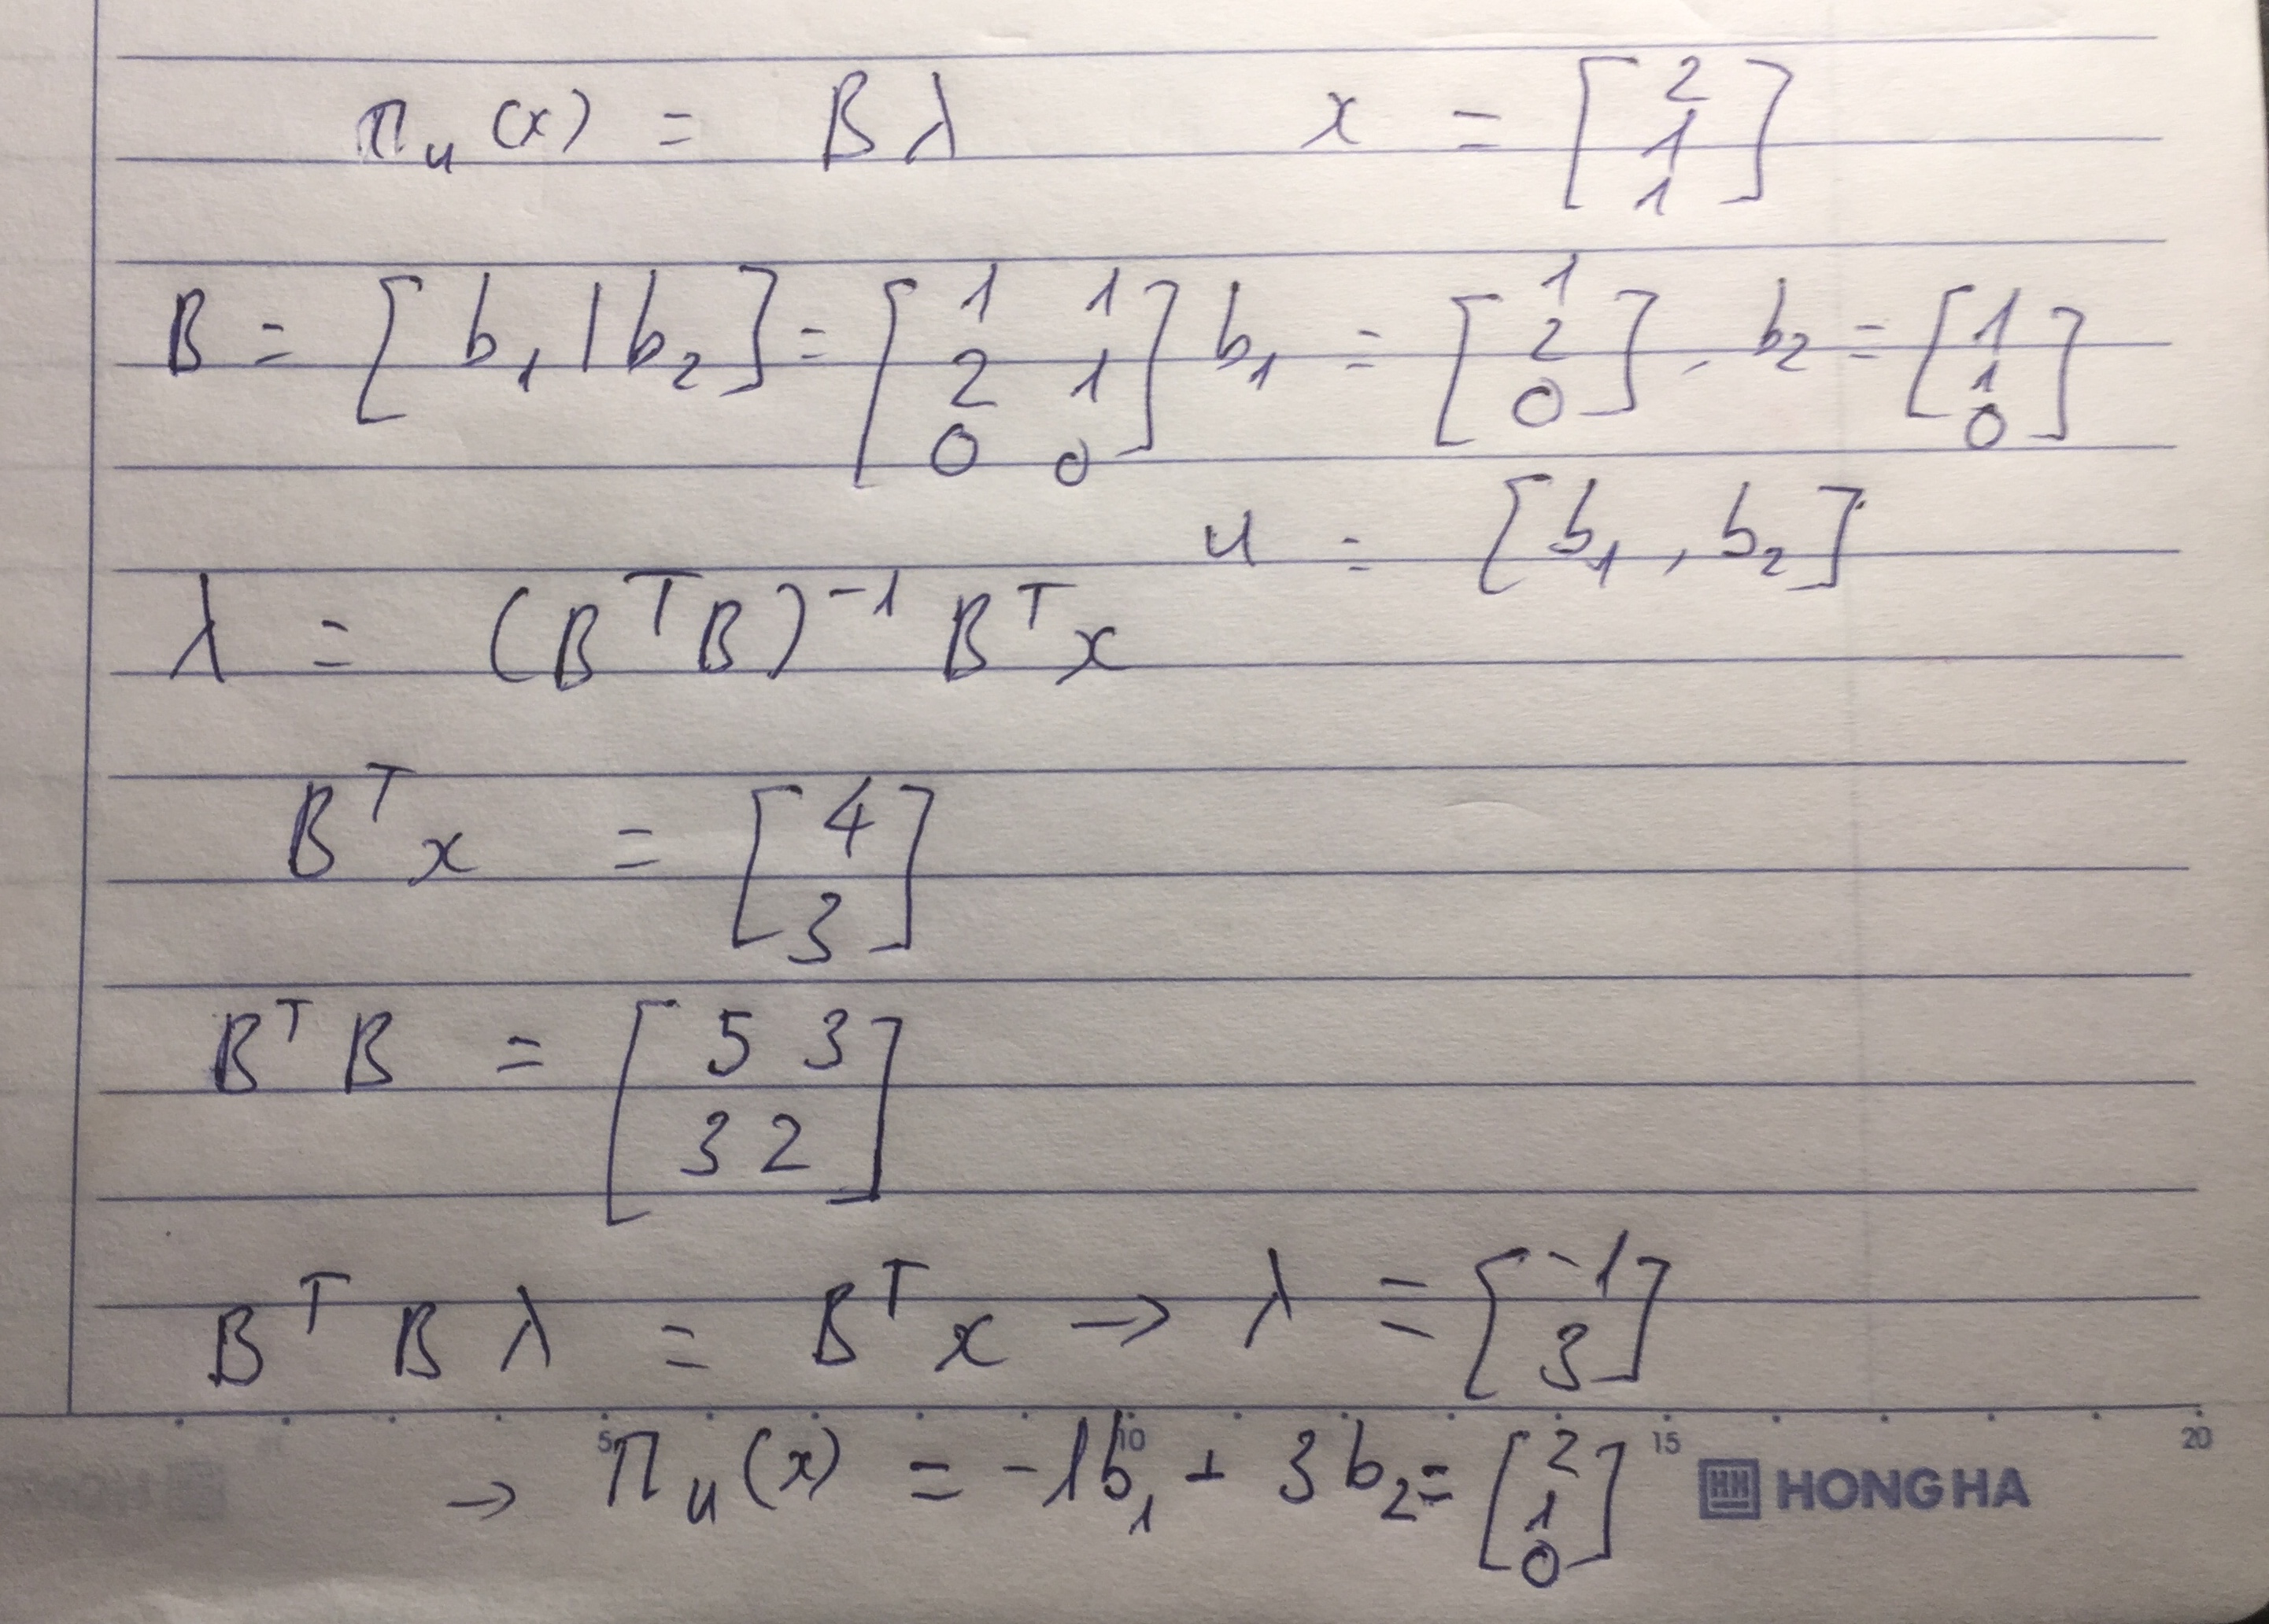 π_u (x) = B λ    x = [2 1 1]
B = [b_1 | b_2] = [1 1 2 1 0 0] b_1 = [1 2 0] , b_2 = [1 1 0]
u = [b_1, b_2]
λ = (B^T B)^-1 B^T x
B^T x = [4 3]
B^T B = [5 3 3 2]
B^T B λ = B^T x → λ = [-1 3]
5 10 15 20
→ π_u (x) = -1b_1 + 3b_2 = [2 1 0]
HH HONG HA